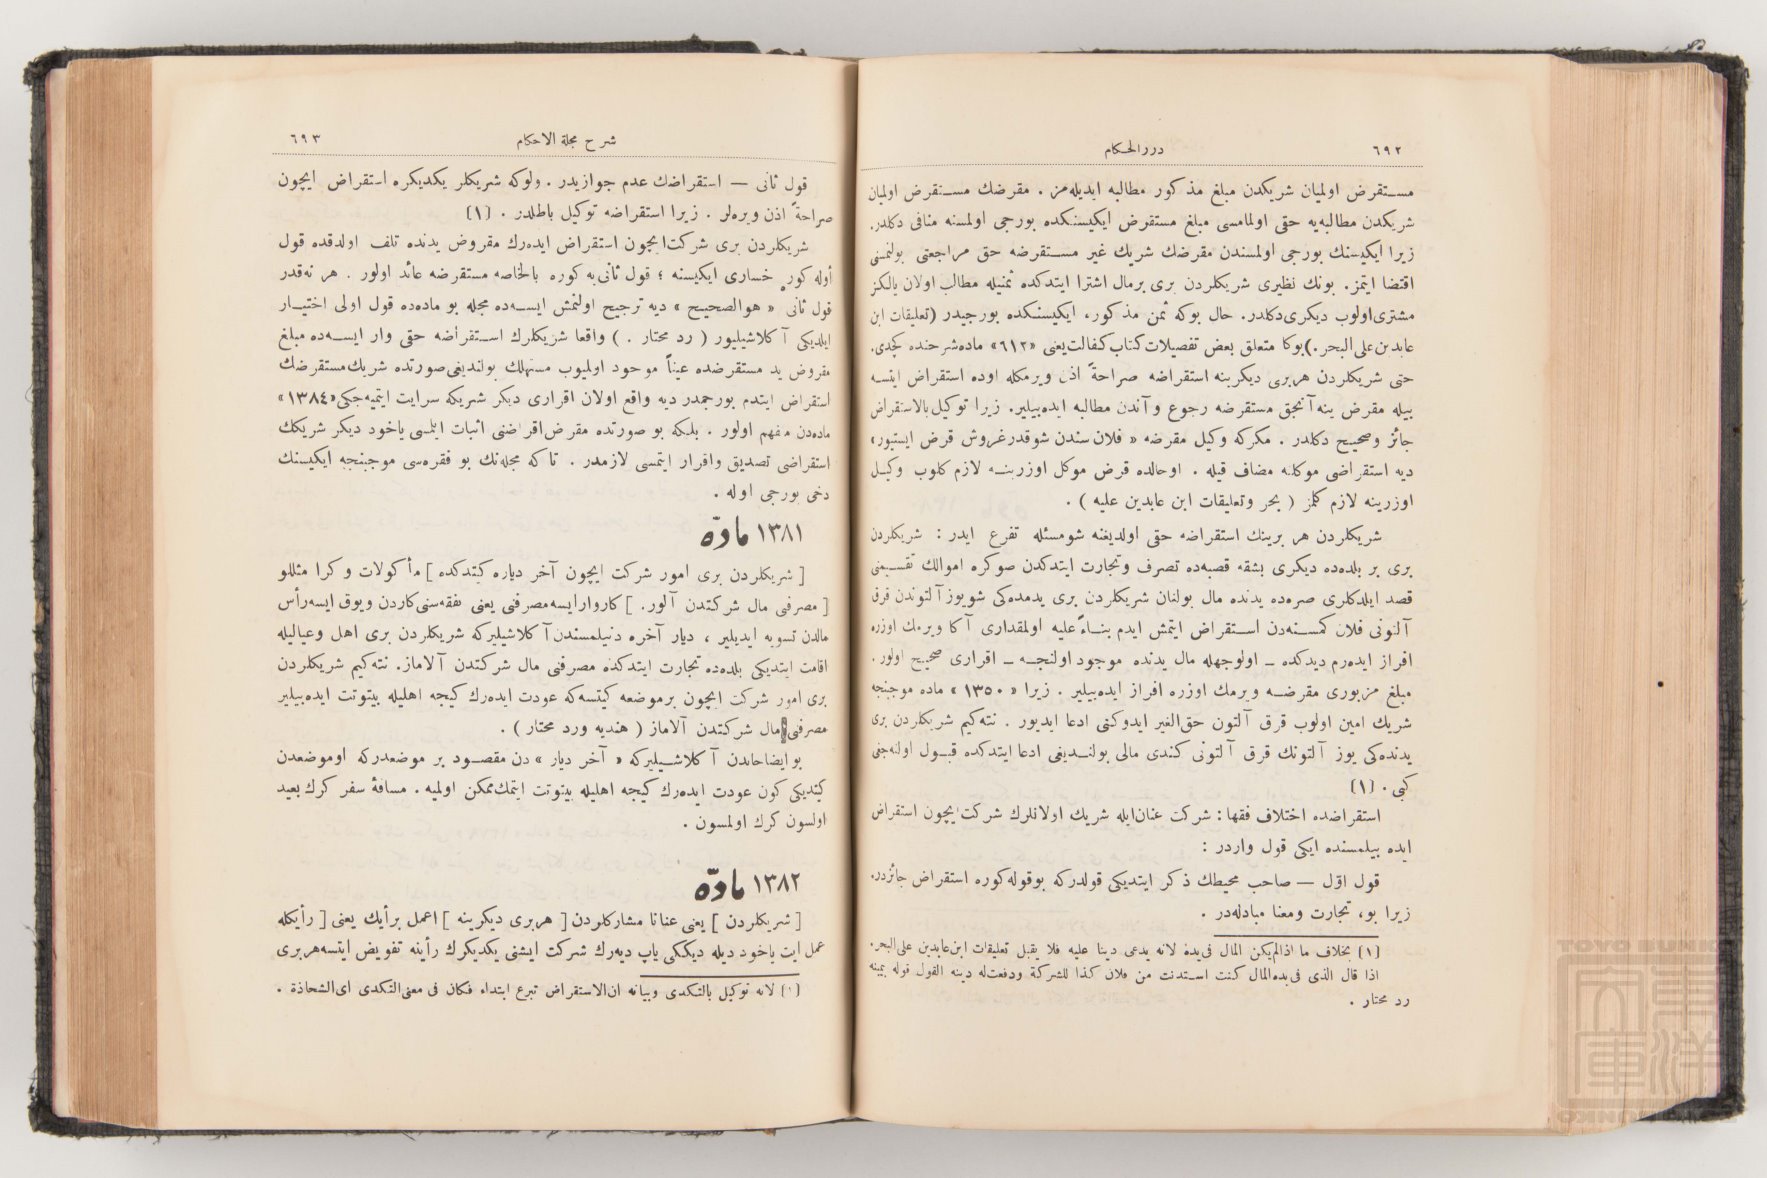 ٦٩٢
دررالحكام
مستقرض اولميان شريكدن مبلغ مذكور مطالبه ايديله‌مز . مقرضك مستقرض اولميان
شريكدن مطالبه‌يه حقى اولمامسى مبلغ مستقرض ايكيسنكده بورجى اولمسنه منافى دكلدر.
زيرا ايكيسنك بورجى اولمسندن مقرضك شريك غير مستقرضه حق مراجعتى بولنمسنى
اقتضا ايتمز. بونك نظيرى شريكلردن برى برمال اشترا ايتدكده ثمنيله مطالب اولان يالكز
مشترى‌اولوب ديكرى‌دكلدر. حال بوكه ثمن مذكور، ايكيسنكده بورجيدر (تعليقات ابن
عابدين‌على‌البحر.)بوكا متعلق بعض تفصيلات‌كتاب‌كفالت‌يعنى «٦١٢» ماده‌شرحنده كچدى.
حتى شريكلردن هربرى ديكرينه استقراضه صراحةً اذن ويرمكله اوده استقراض ايتسه
بيله مقرض ينه‌آنجق مستقرضه رجوع و آندن مطالبه ايده‌بيلير. زيرا توكيل‌بالاستقراض
جائز وصحيح دكلدر . مكركه وكيل مقرضه « فلان سندن شوقدرغروش قرض ايستيور»
ديه استقراضى موكلنه مضاف قيله . اوحالده قرض موكل اوزرينه لازم كلوب وكيل
اوزرينه لازم كلمز ( بحر وتعليقات ابن عابدين عليه ) .
شريكلردن هر برينك استقراضه حقى اولديغنه شومسئله تفرع ايدر : شريكلردن
برى بر بلده‌ده ديكرى بشقه قصبه‌ده تصرف وتجارت ايتدكدن صوكره اموالك تقسيمنى
قصد ايلدكلرى صره‌ده يدنده مال بولنان شريكلردن برى يدمده‌كى شويوزآلتوندن قرق
آلتونى فلان كمسنه‌دن استقراض ايتمش ايدم بناءً عليه اولمقدارى آكا ويرمك اوزره
افراز ايده‌رم ديدكده ــ اولوجهله مال يدنده موجود اولنجه ــ اقرارى صحيح اولور.
مبلغ مزبورى مقرضه ويرمك اوزره افراز ايده‌بيلير . زيرا «١٣٥٠» ماده موجبنجه
شريك امين اولوب قرق آلتون حق‌الغير ايدوكنى ادعا ايديور . نته‌كيم شريكلردن برى
يدنده‌كى يوز آلتونك قرق آلتونى كندى مالى بولنديغى ادعا ايتدكده قبول اولنه‌جغى
كبى . (١)
استقراضده اختلاف فقها : شركت عنان‌ايله شريك اولانلرك شركت‌ايچون استقراض
ايده بيلمسنده ايكى قول واردر :
قول اوّل — صاحب محيطك ذكر ايتديكى قولدركه بوقوله‌كوره استقراض جائزدر.
زيرا بو، تجارت ومعنا مبادله‌در .
(١) بخلاف ما اذالم‌يكن المال فى‌يده لانه يدعى دينا عليه فلا يقبل تعليقات ابن‌عابدين على‌البحر.
اذا قال الذى فى‌يده‌المال كنت استدنت من فلان كذا للشركة ودفعت‌له دينه القول قوله بيمينه
رد محتار .
٦٩٣
شرح مجلة الاحكام
قول ثانى — استقراضك عدم جوازيدر . ولوكه شريكلر يكديكره استقراض ايچون
صراحةً اذن ويره‌لر . زيرا استقراضه توكيل باطلدر . (١)
شريكلردن برى شركت‌ايچون استقراض ايده‌رك مقروض يدنده تلف اولدقده قول
اوله كوره خسارى ايكيسنه ؛ قول ثانى‌يه كوره بالخاصه مستقرضه عائد اولور . هر نه‌قدر
قول ثانى « هوالصحيح » ديه ترجيح اولنمش ايسه‌ده مجله بو ماده‌ده قول اولى اختيار
ايلديكى آكلاشيليور ( رد محتار . ) واقعا شريكلرك استقراضه حقى وار ايسه‌ده مبلغ
مقروض يد مستقرضده عيناً موجود اولميوب مستهلك بولنديغى‌صورتده شريك‌مستقرضك
استقراض ايتدم بورجمدر ديه واقع اولان اقرارى ديكر شريكه سرايت ايتميه‌جكى«١٣٨٤»
ماده‌دن مفهم اولور . بلكه بو صورتده مقرض‌اقراضنى اثبات ايتلمسى ياخود ديكر شريكك
استقراضى تصديق واقرار ايتمسى لازمدر . تا كه مجله‌نك بو فقره‌سى موجبنجه ايكيسنك
دخى بورجى اوله .
١٣٨١ مادّه
[ شريكلردن برى امور شركت ايچون آخر دياره كيتدكده ] مأكولات و كرا مثللو
[ مصرفنى مال شركتدن آلور. ] كاروارايسه‌مصرفنى يعنى نفقه‌سنى‌كاردن ويوق ايسه‌رأس
مالدن تسويه ايديلير ، ديار آخره دنيلمسندن‌آكلاشيليركه شريكلردن برى اهل وعياليله
اقامت ايتديكى بلده‌ده تجارت ايتدكده مصرفنى مال شركتدن آلاماز. نته‌كيم شريكلردن
برى امور شركت ايچون برموضعه كيتسه‌كه عودت ايده‌رك كيجه اهليله بيتوتت ايده‌بيلير
مصرفنى مال شركتدن آلاماز ( هنديه ورد محتار ) .
بو ايضاحاتدن آكلاشيليركه « آخر ديار » دن مقصود بر موضعدركه اوموضعدن
كيتديكى كون عودت ايده‌رك كيجه اهليله بيتوتت ايتمك‌ممكن اولميه . مسافهٔ سفر كرك بعيد
اولسون كرك اولمسون .
١٣٨٢ مادّه
[ شريكلردن ] يعنى عنانا مشاركلردن [ هربرى ديكرينه ] اعمل برأيك يعنى [ رأيكله
عمل ايت ياخود ديله ديككى ياپ ديه‌رك شركت ايشنى يكديكرك رأينه تفويض ايتسه‌هربرى
(١) لانه توكيل بالتكدى وبيانه ان‌الاستقراض تبرع ابتداء فكان فى معنى‌التكدى اى‌الشحاذة .